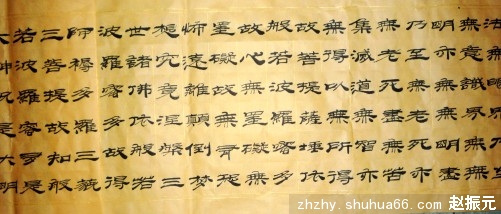 法無眼界乃至
無意識界無無
明亦無無明盡
乃至無老死亦
無老死盡無苦
集滅道無智亦
無得以無所得
故菩提薩埵依
般若波羅蜜多
故心無罣礙無
罣礙故無有恐
怖遠離顛倒夢
想究竟涅槃三
世諸佛依般若
波羅蜜多故得
阿耨多羅三藐
三菩提故知般
若波羅蜜多是
大神咒是大明
zhzhy.shuhua66.com 赵振元